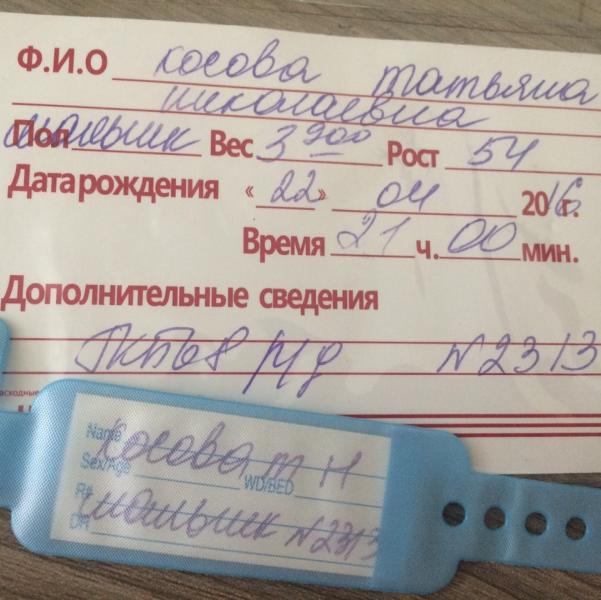 Ф.И.О косова татьяна
николаевна
Пол мальчик Вес 3 900 Рост 54
Дата рождения «22» 04 2016 г.
Время 21 ч. 00 мин.
Дополнительные сведения
ГКБ68 N2313
Name Косова т Н
Sex/Age WD/BED
мальчик N2313
DR